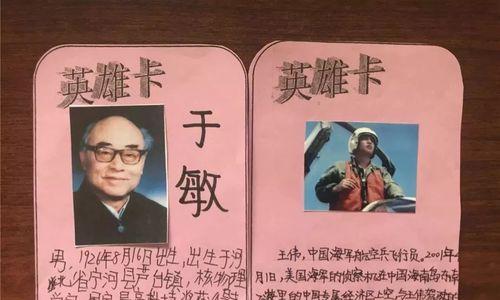 英雄卡
于敏
男，1926年8月16日出生，出生于河
省宁河县芦台镇，核物理
英雄卡
王伟，中国海军航空兵飞行员。2001年4
月1日，美国海军的侦察机在中国海南岛东南
海里的中国专属经济区上空